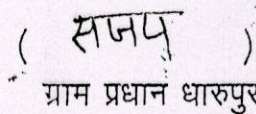 ( सजय )
ग्राम प्रधान धारुपुर